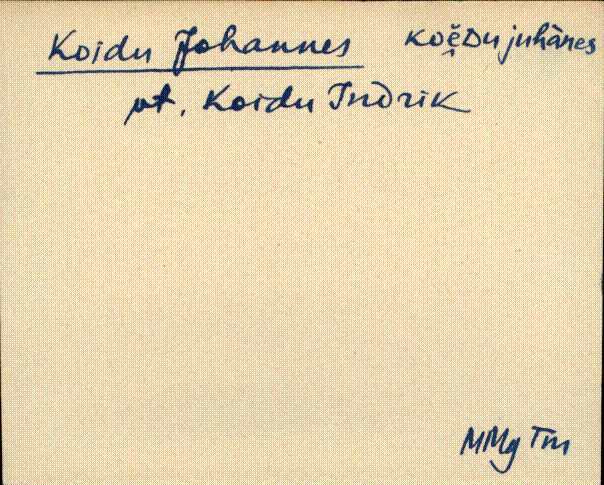 Koidu Johannes koĕ̯Du juhànes
vt. Koidu Indrik
MMg Tm